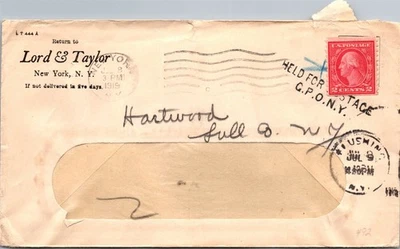 L T 444 A
Return to
Lord & Taylor
New York, N. Y.
If not delivered in five days.
3 PM
HELD FOR POSTAGE
G.P.O.N.Y.
U.S. POSTAGE
2 CENTS 2
Hartwood
Sull Co. N Y
FLUSHING
JUL 9
N.Y.
2